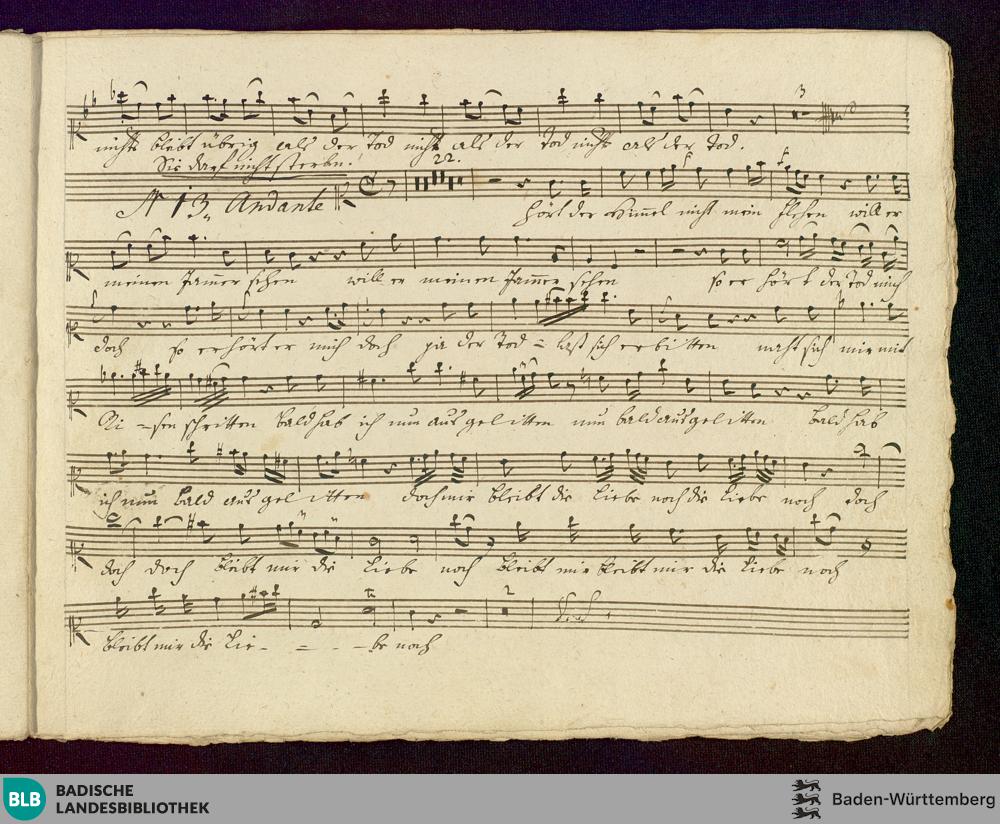 3
nichts bleibt übrig als der Tod nichts als der Tod nichts als der Tod.
Sie darf nicht sterben.
22.
N 13 Andante
hört der Him̄el nicht mein flehen will er
meinen Jam̄er sehen will er meinen Jam̄er sehen so er hört der Tod mich
doch so erhört er mich doch ja der Tod = läst sich erbitten naht sich mir mit
Ri -sen schritten bald hab ich nun aus gelitten nun bald ausgelitten bald hab
ich nun bald aus gelitten doch mir bleibt die Liebe noch die Liebe noch doch
2
doch doch bleibt mir die Liebe noch bleibt mir bleibt mir die Liebe noch
2
bleibt mir die Lie - = - - -be noch
BLB BADISCHE
LANDESBIBLIOTHEK
Baden-Württemberg